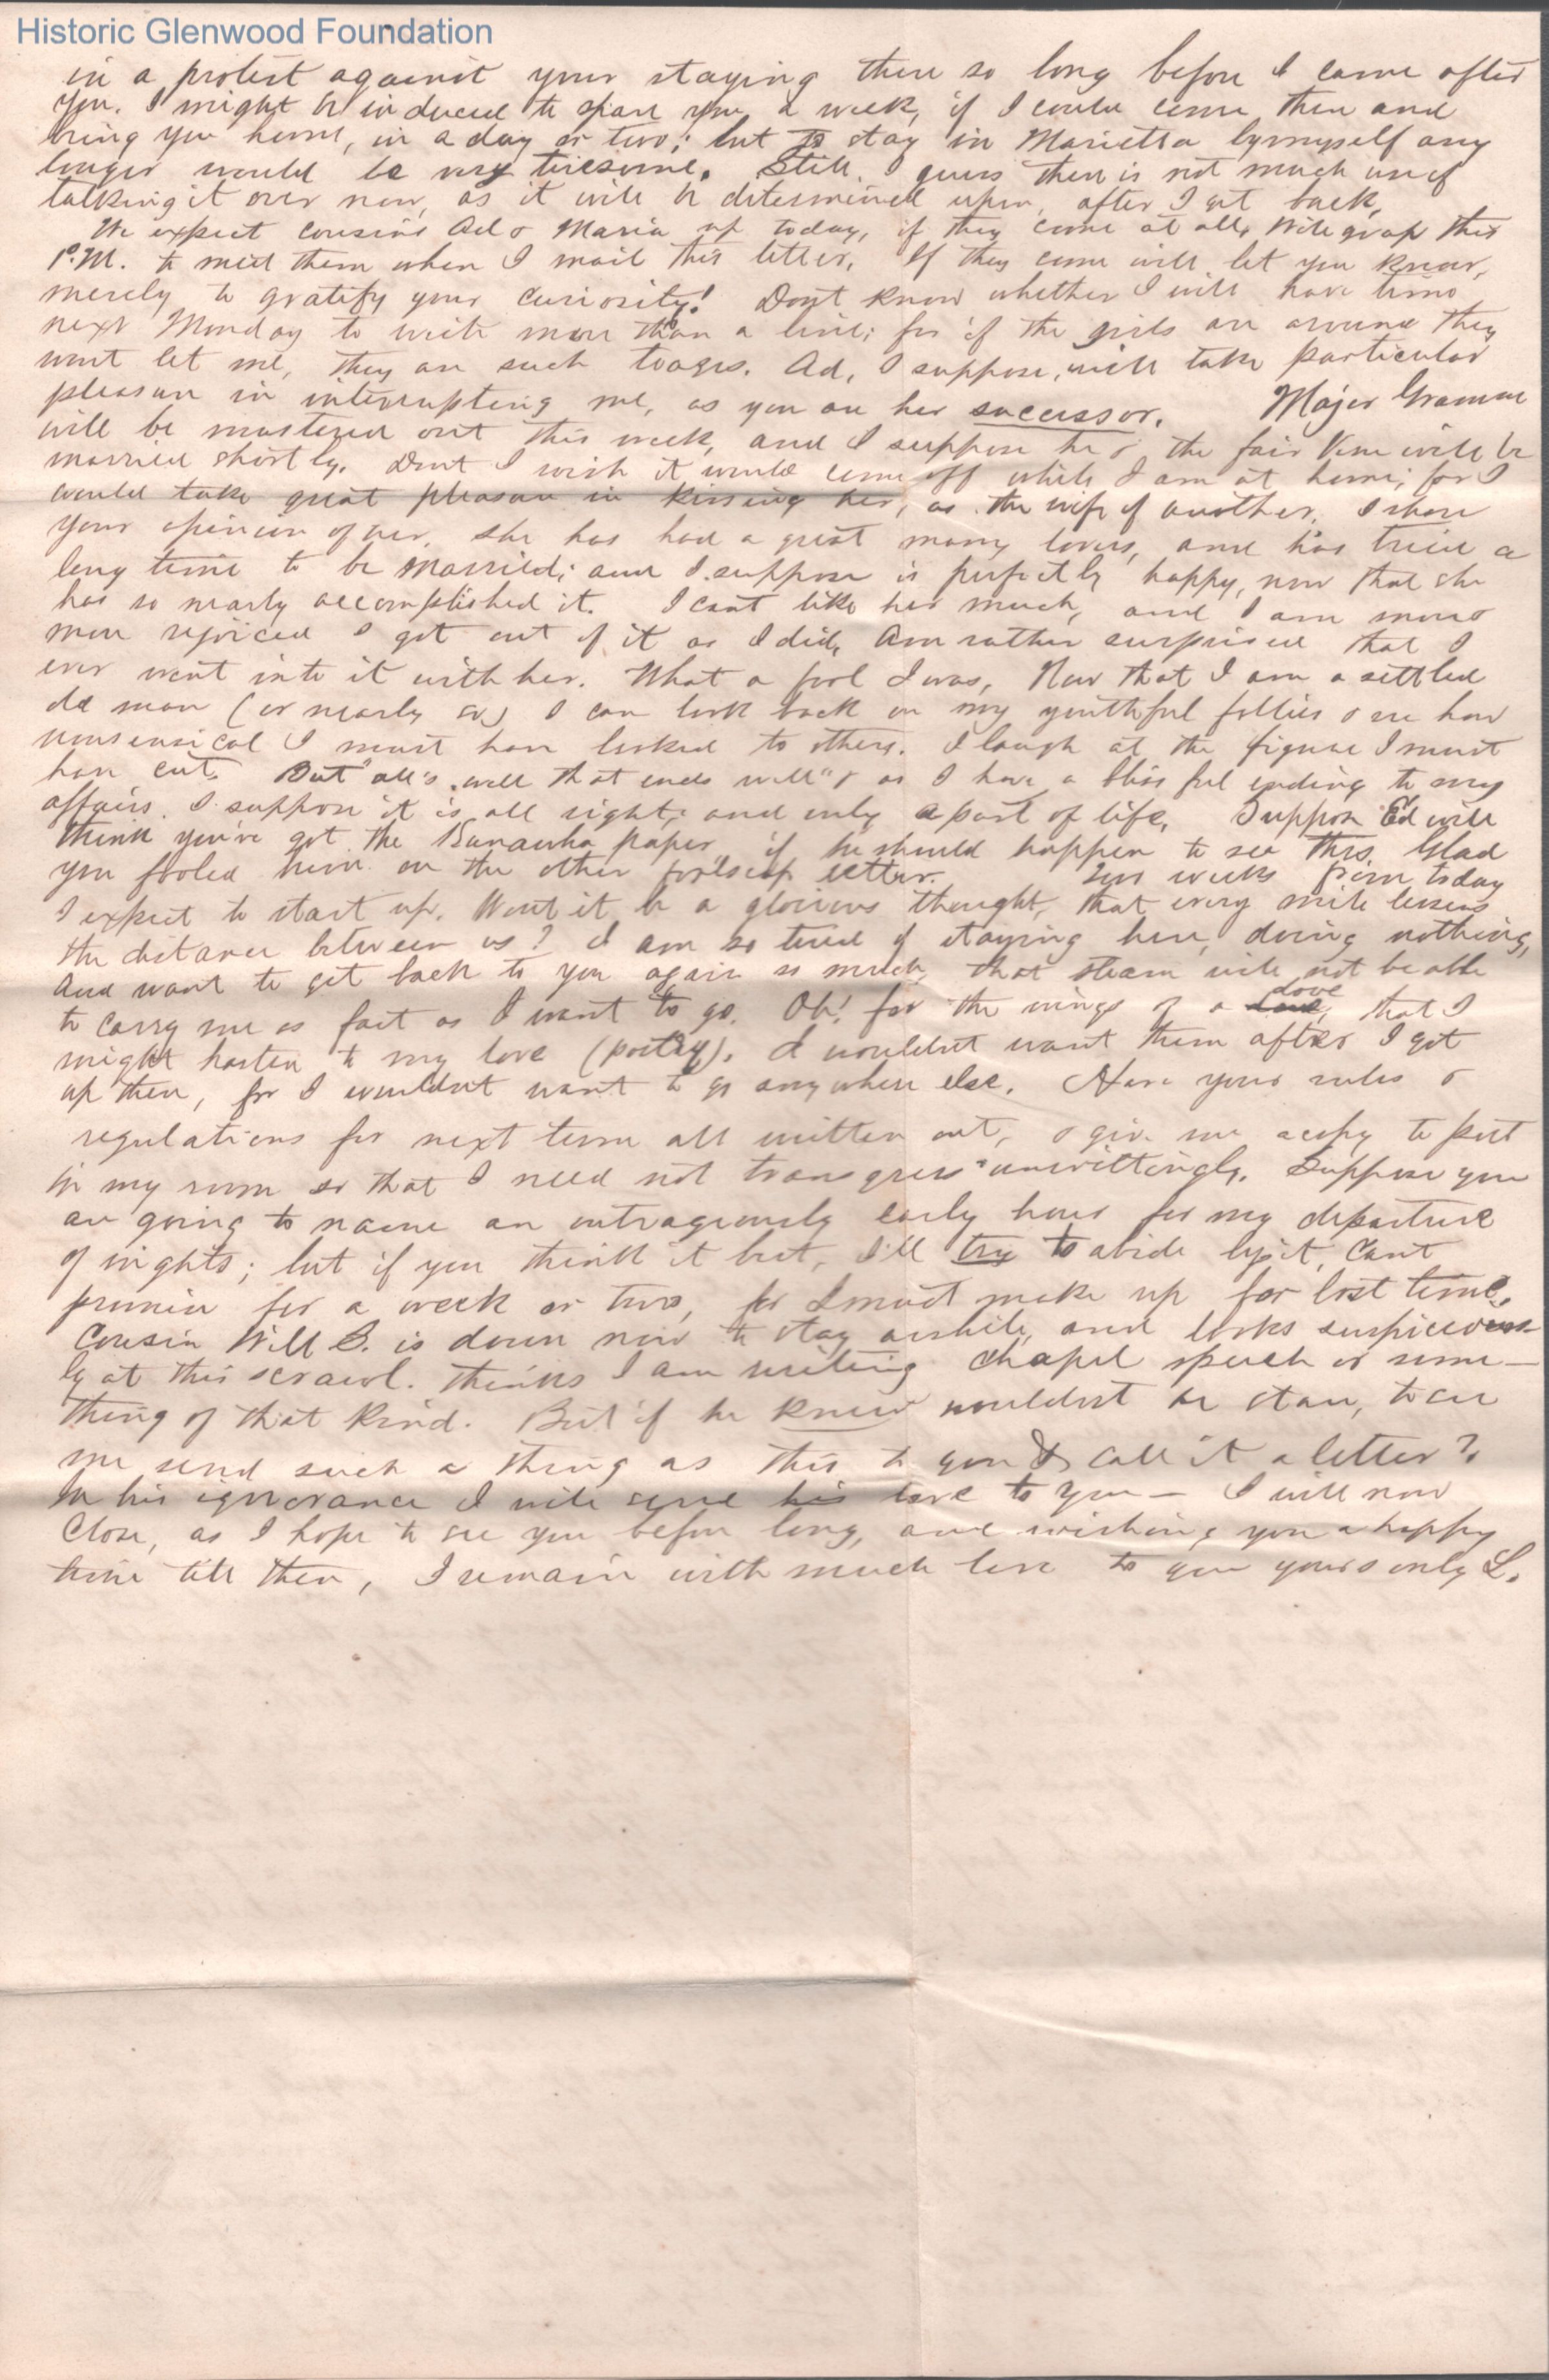 Historic Glenwood Foundation
in a protest against your staying there so long before I came after
you. I might be induced to spare you a week, if I could come then and
bring you home, in a day or two; but to stay in Marietta by myself any
longer would be very tiresome. Still, I guess there is not much use of
talking it over now, as it will be determined upon, after I get back.
We expect cousins Ad & Maria up today, if they come at all. Will go up this
P.M. to meet them when I mail this letter. If they come will let you know,
merely to gratify your curiosity! Dont know whether I will have time
next Monday to write more than a line; for if the girls are around they
wont let me, they are such teazes. Ad, I suppose, will take particular
pleasure in interrupting me, as you are her successor. Major
will be mustered out this week, and I suppose he & the fair will be
married shortly. Dont I wish it would come off while I am at home; for I
would take great pleasure in kissing her, as the wife of another. I share
your opinion of her. She has had a great many lovers, and has tried a
long time to be married; and I suppose is perfectly happy, now that she
has so nearly accomplished it. I cant like her much, and I am more &
more rejoiced I got out of it as I did. Am rather surprised that I
ever went into it with her. What a fool I was. Now that I am a settled
old man (or nearly so) I can look back on my youthful follies & see how
nonsensical I must have looked to others. I laugh at the figure I must
have cut. But "all's well that ends well" & as I have a blissful ending to my
affairs, I suppose it is all right; and only a part of life. Suppose Ed will
think you've got the paper if he should happen to see this. Glad
you fooled him on the other foolscap letter. Two weeks from today
I expect to start up. Wont it be a glorious thought, that every mile lessens
the distance between us? I am so tired of staying here, doing nothing,
and want to get back to you again so much, that steam will not be able
to carry me as fast as I want to go. Oh! for the wings of a dove, that I
might hasten to my love (poetry). I wouldnt want them after I got
up there, for I wouldnt want to go anywhere else. Have your rules &
regulations for next term all written out, & give me a copy to post
in my room so that I need not transgress unwittingly. Suppose you
are going to name an outrageously early hour for my departure
of nights; but if you think it best, I'll try to abide by it. Cant
promise for a week or two, for I must make up for lost time.
Cousin Will S. is down now to stay awhile, and looks suspicious-
ly at this scrawl. Thinks I am writing chapel speech or some-
thing of that kind. But if he knew wouldnt he stare, to see
me send such a thing as this to you & call it a letter?
In his ignorance I will send his love to you — I will now
close, as I hope to see you before long, and wishing you a happy
time till then, I remain with much love to you yours only L.